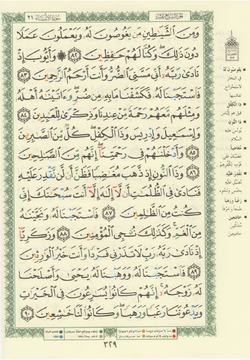 وَمِنَ ٱلشَّيَٰطِينِ مَن يَغُوصُونَ لَهُۥ وَيَعْمَلُونَ عَمَلًا
دُونَ ذَٰلِكَ ۖ وَكُنَّا لَهُمْ حَٰفِظِينَ ٨٢ ۞ وَأَيُّوبَ إِذْ
نَادَىٰ رَبَّهُۥٓ أَنِّى مَسَّنِىَ ٱلضُّرُّ وَأَنتَ أَرْحَمُ ٱلرَّٰحِمِينَ ٨٣
فَٱسْتَجَبْنَا لَهُۥ فَكَشَفْنَا مَا بِهِۦ مِن ضُرٍّ ۖ وَءَاتَيْنَٰهُ أَهْلَهُۥ
وَمِثْلَهُم مَّعَهُمْ رَحْمَةً مِّنْ عِندِنَا وَذِكْرَىٰ لِلْعَٰبِدِينَ ٨٤
وَإِسْمَٰعِيلَ وَإِدْرِيسَ وَذَا ٱلْكِفْلِ ۖ كُلٌّ مِّنَ ٱلصَّٰبِرِينَ
٨٥ وَأَدْخَلْنَٰهُمْ فِى رَحْمَتِنَآ ۖ إِنَّهُم مِّنَ ٱلصَّٰلِحِينَ
٨٦ وَذَا ٱلنُّونِ إِذ ذَّهَبَ مُغَٰضِبًا فَظَنَّ أَن لَّن نَّقْدِرَ عَلَيْهِ
فَنَادَىٰ فِى ٱلظُّلُمَٰتِ أَن لَّآ إِلَٰهَ إِلَّآ أَنتَ سُبْحَٰنَكَ إِنِّى
كُنتُ مِنَ ٱلظَّٰلِمِينَ ٨٧ فَٱسْتَجَبْنَا لَهُۥ وَنَجَّيْنَٰهُ
مِنَ ٱلْغَمِّ ۚ وَكَذَٰلِكَ نُـۨجِى ٱلْمُؤْمِنِينَ ٨٨ وَزَكَرِيَّآ
إِذْ نَادَىٰ رَبَّهُۥ رَبِّ لَا تَذَرْنِى فَرْدًا وَأَنتَ خَيْرُ ٱلْوَٰرِثِينَ
٨٩ فَٱسْتَجَبْنَا لَهُۥ وَوَهَبْنَا لَهُۥ يَحْيَىٰ وَأَصْلَحْنَا
لَهُۥ زَوْجَهُۥٓ ۚ إِنَّهُمْ كَانُوا۟ يُسَٰرِعُونَ فِى ٱلْخَيْرَٰتِ
وَيَدْعُونَنَا رَغَبًا وَرَهَبًا ۖ وَكَانُوا۟ لَنَا خَٰشِعِينَ ٩٠
٣٢٩